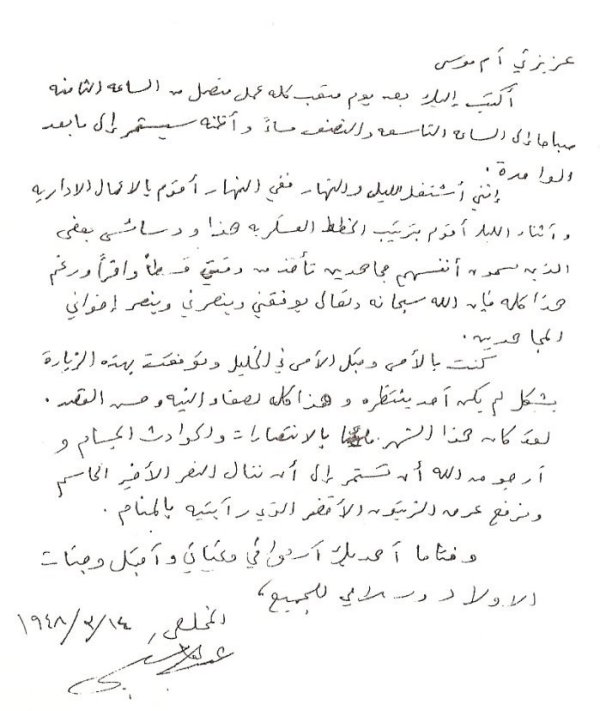 عزيزتي أم موسى
أكتب إليك بعد يوم متعب كله عمل متصل من الساعة الثامنه
صباحا إلى الساعة التاسعة والنصف مساءً وأظنه سيستمر إلى ما بعد
الواحدة.
إنني أشتغل الليل والنهار ففي النهار أقوم بالاعمال الاداريه
وأثناء الليل أقوم بترتيب الخطط العسكريه هذا ودسائس بعض
الذين يسمون أنفسهم مجاهدين تأخذ من وقتي قسطاً وافراً ورغم
هذا كله فإن الله سبحانه وتعالى يوفقني وينصرني وينصر إخواني
المجاهدين.
كنت بالأمس وقبل الأمس في الخليل وتوفقت بهذه الزيارة
بشكل لم يكن أحد ينتظره وهذا كله لصفاء النيه وحسن القصد.
لقد كان هذا الشهر بالانتصارات والحوادث الجسام و
أرجو من الله أن تستمر إلى أن ننال النصر الأخير الحاسم
ونرفع غصن الزيتون الأخضر الذي رأيتيه بالمنام.
وختاما أهديك أشواقي وتحياتي وأقبل وجنات
الاولاد وسلامي للجميع،
المخلص ١٩٤٨/٣/١٤
عبد القادر الحسيني